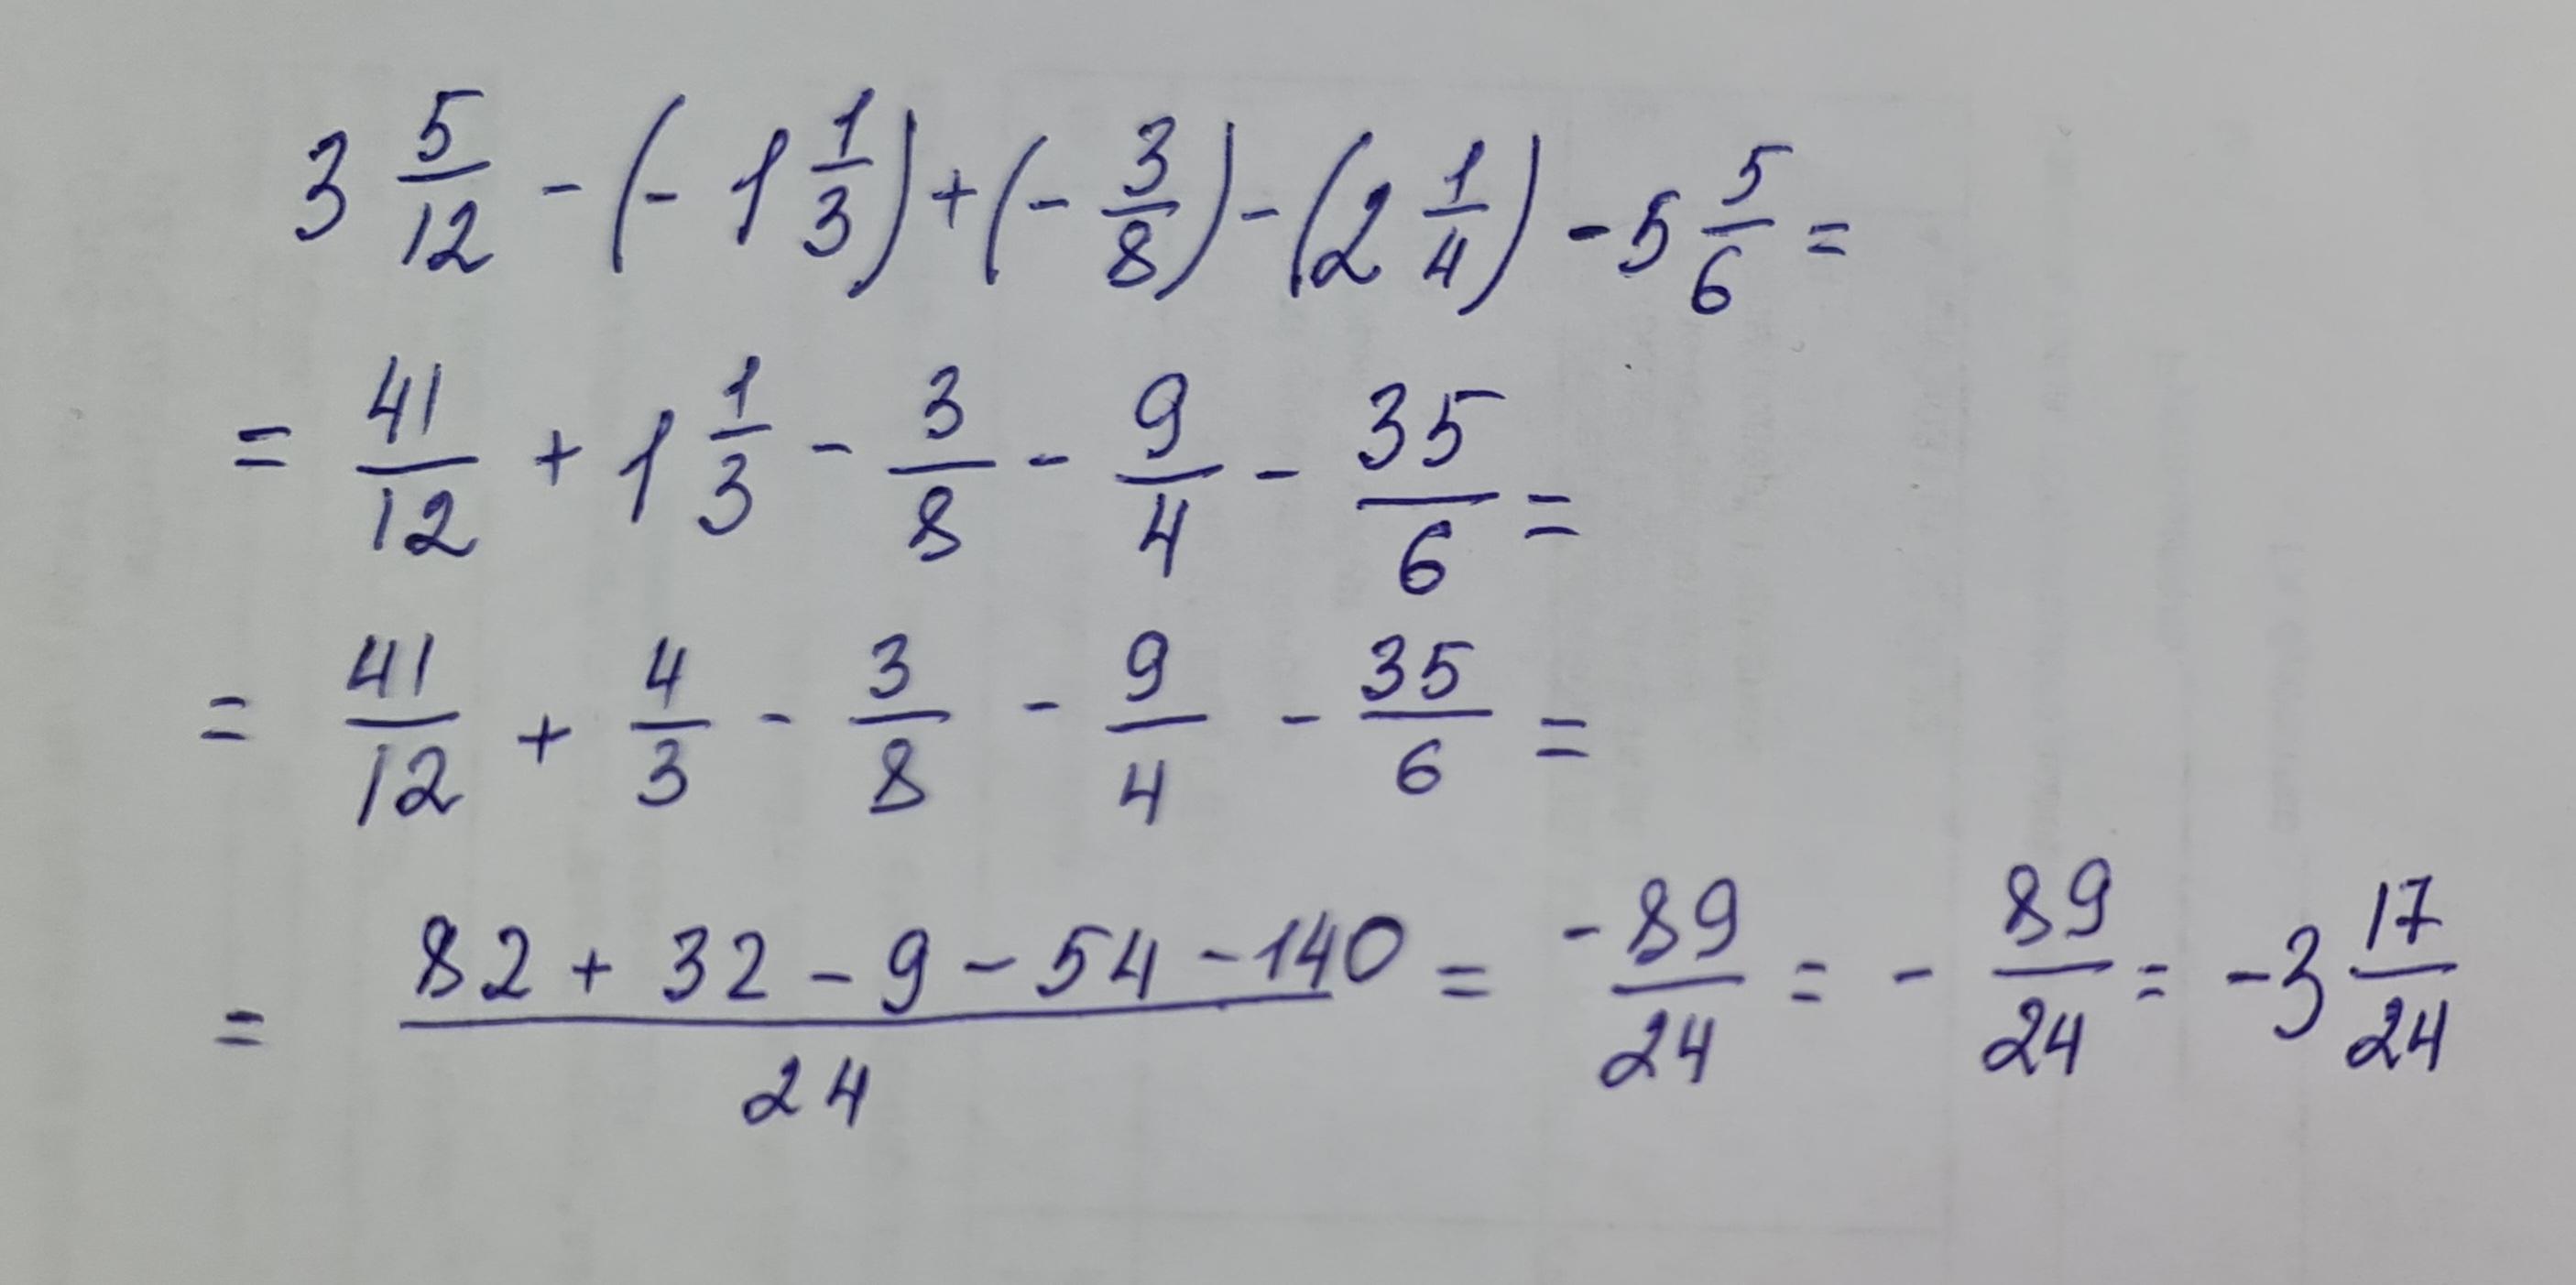 3 5/12 - (- 1 1/3) + (- 3/8) - (2 1/4) - 5 5/6 =
= 41/12 + 1 1/3 - 3/8 - 9/4 - 35/6 =
= 41/12 + 4/3 - 3/8 - 9/4 - 35/6 =
= (82 + 32 - 9 - 54 - 140)/24 = -89/24 = - 89/24 = -3 17/24